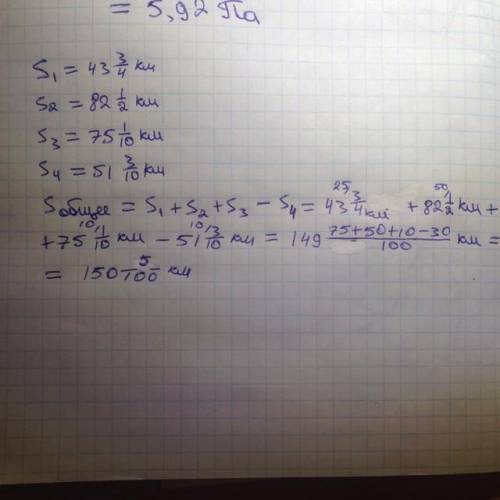 = 5,92 Па
S₁ = 43 3/4 км
S₂ = 82 1/2 км
S₃ = 75 1/10 км
S₄ = 51 3/10 км
Sобщее = S₁ + S₂ + S₃ − S₄ = 43 ²⁵⁾3/4 км + 82 ⁵⁰⁾1/2 км +
+ 75 ¹⁰⁾1/10 км − 51 ¹⁰⁾3/10 км = 149 (75+50+10−30)/100 км =
= 150 5/100 км